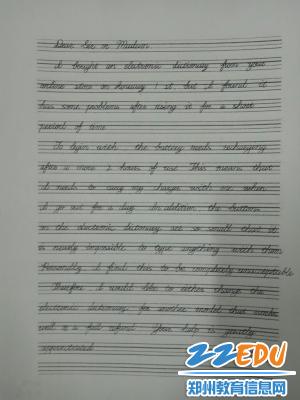 Dear Sir or Madam:
I bought an electronic dictionary from your
online store on January 1 st, but I found it
has some problems after using it for a short
period of time.
To begin with, the battery needs recharging
after a mere 2 hours of use. This means that
I needs to carry my charger with me when
I go out for a day. In addition, the buttons
on the electronic dictionary are so small that it
is nearly impossible to type anything with them.
Personally, I find this to be completely unacceptable.
Therefore, I would like to either change the
electronic dictionary for another model that works
well or a full refund. Your help is greatly
appreciated.
22EDU
郑州教育信息网